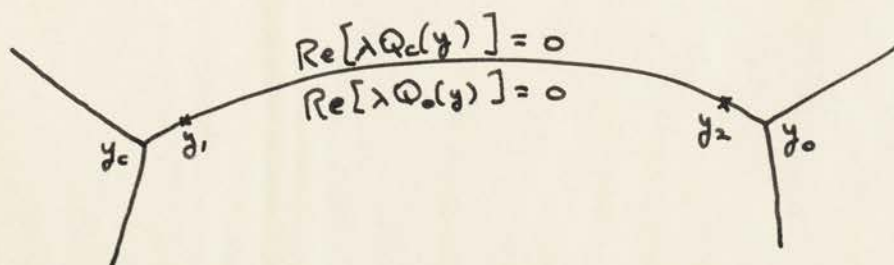 Re[λQ_c(y)] = 0
Re[λQ_o(y)] = 0
y_c
y_1
y_2
y_o